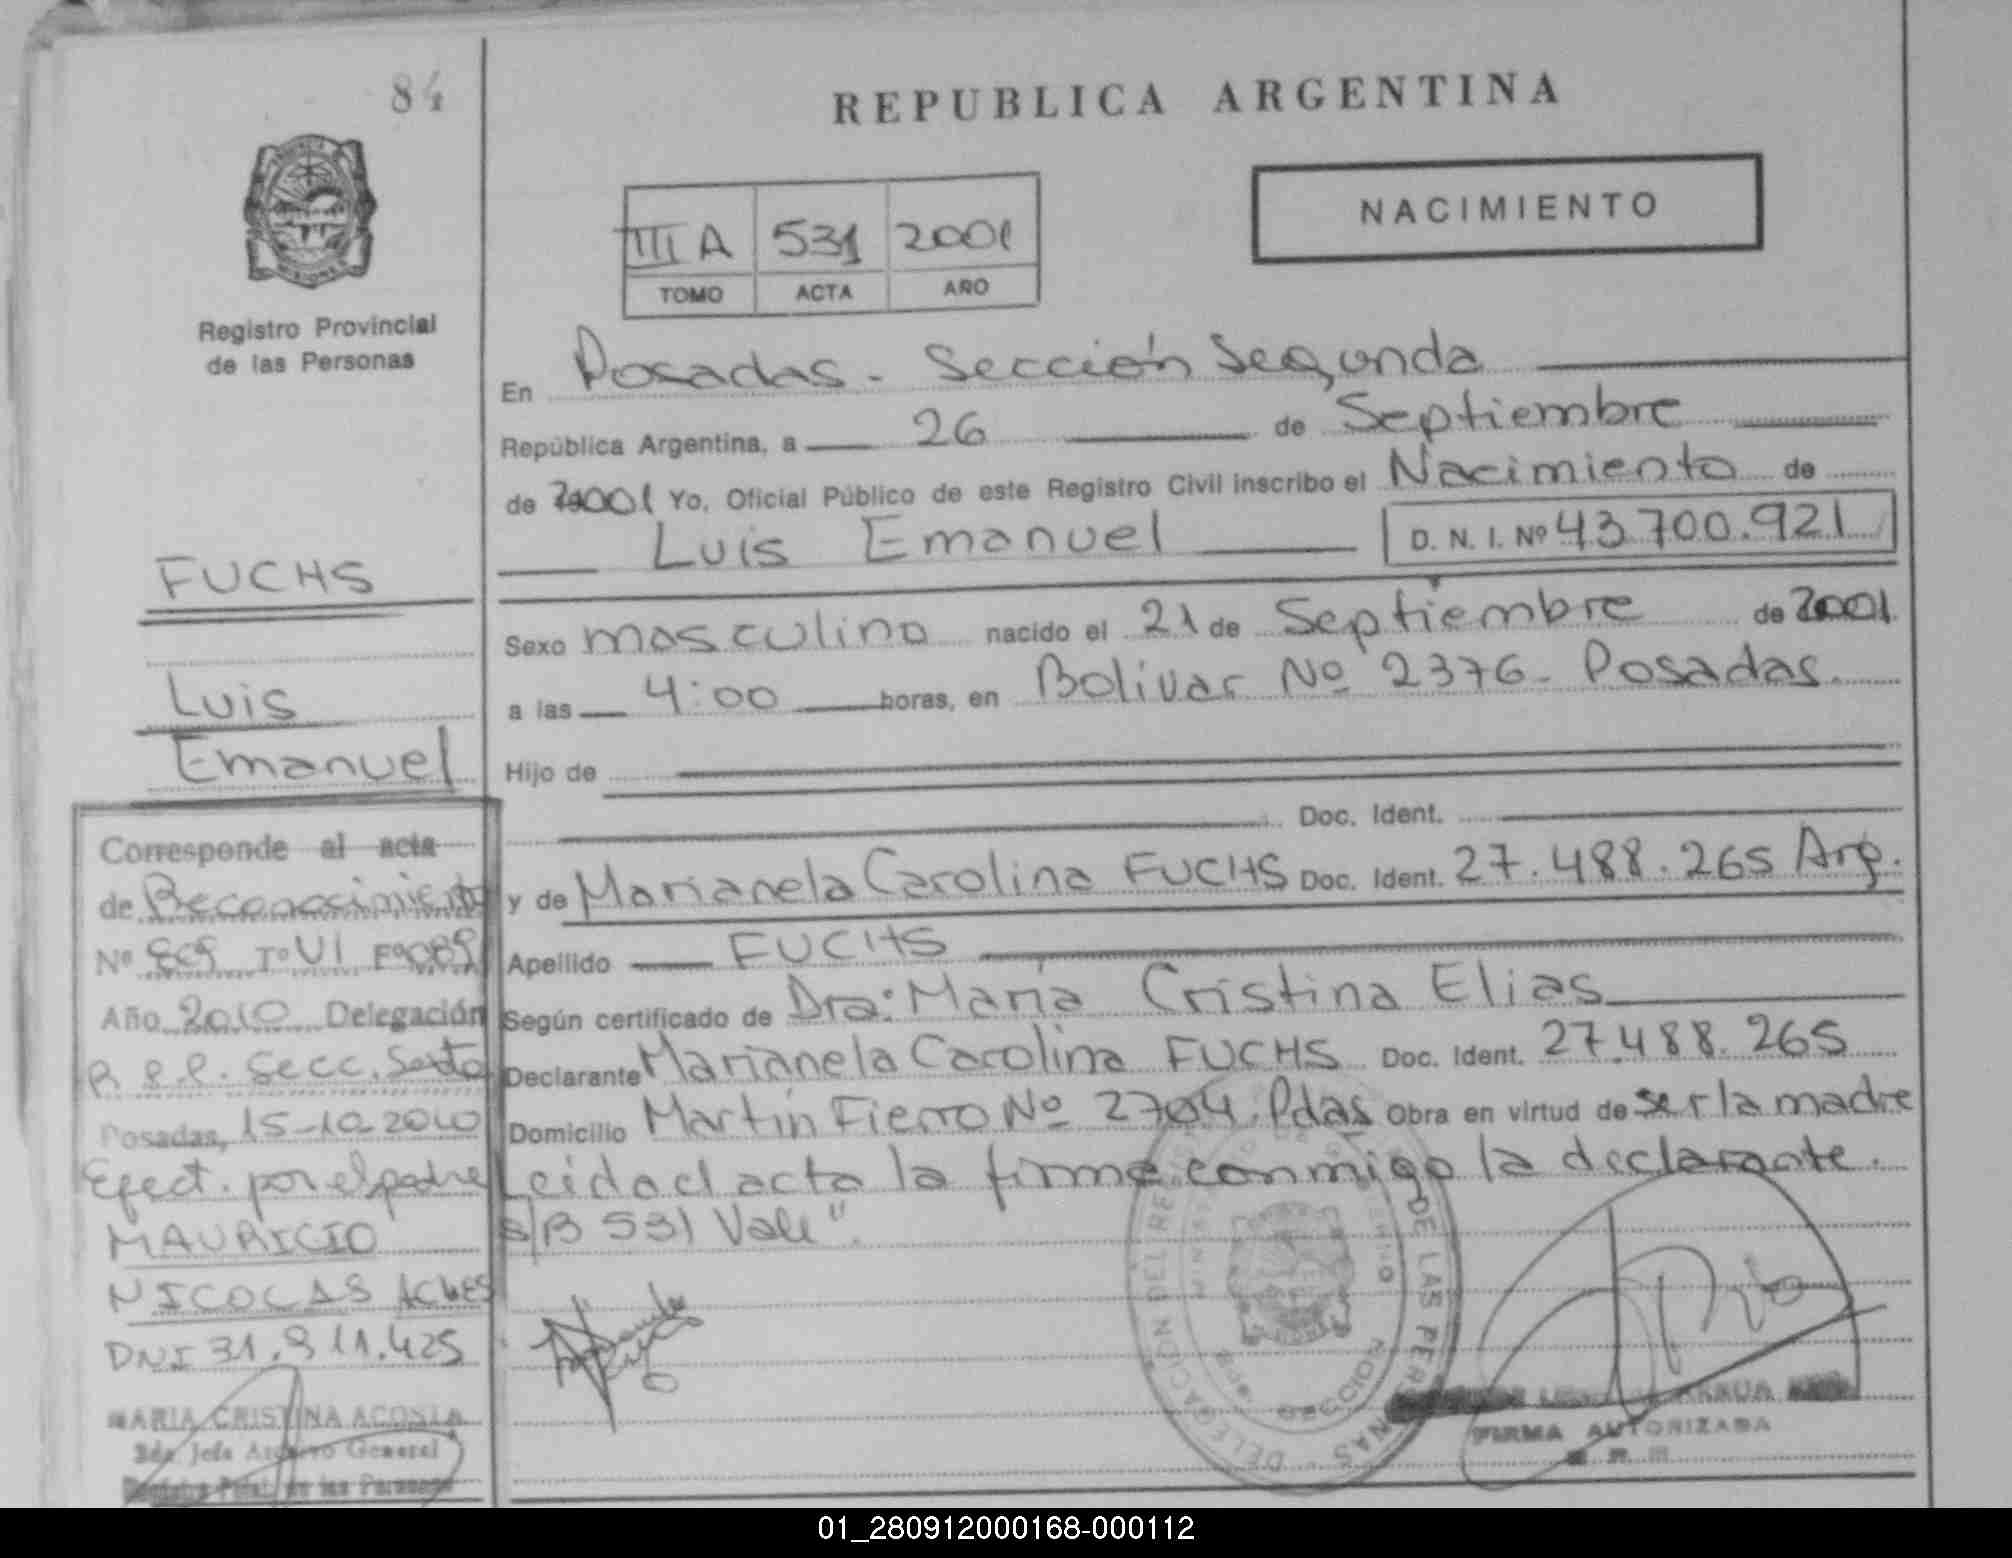 84
REPUBLICA ARGENTINA
NACIMIENTO
III A 531 2001
TOMO ACTA AÑO
Registro Provincial
de las Personas
En Posadas - Sección Segunda
República Argentina, a 26 de Septiembre
de 2001 Yo, Oficial Público de este Registro Civil inscribo el Nacimiento de
Luis Emanuel D. N. I. Nº 43.700.921
Sexo masculino nacido el 21 de Septiembre de 2001
a las 4:00 horas, en Bolivar Nº 2376 - Posadas.
Hijo de
Doc. Ident.
y de Marianela Carolina FUCHS Doc. Ident. 27.488.265 Arg.
Apellido FUCHS
Según certificado de Dra: María Cristina Elias
Declarante Marianela Carolina FUCHS Doc. Ident. 27.488.265
Domicilio Martín Fierro Nº 2704. Pdas Obra en virtud de ser la madre
Leida el acta la firma conmigo la declarante.
s/B 531 Vale".
FUCHS
Luis
Emanuel
Corresponde al acta
de Reconocimiento
Nº Tº VI Fº 089
Año 2010 Delegación
Secc. Sexta
Posadas, 15-10-2010
Efect. por el padre
MAURICIO
NICOLAS
DNI 31.911.425
MARIA CRISTINA ACOSTA
Jefe Archivo General
de las Personas
DELEGACION DEL REGISTRO DE LAS PERSONAS
FIRMA AUTORIZADA
01_280912000168-000112